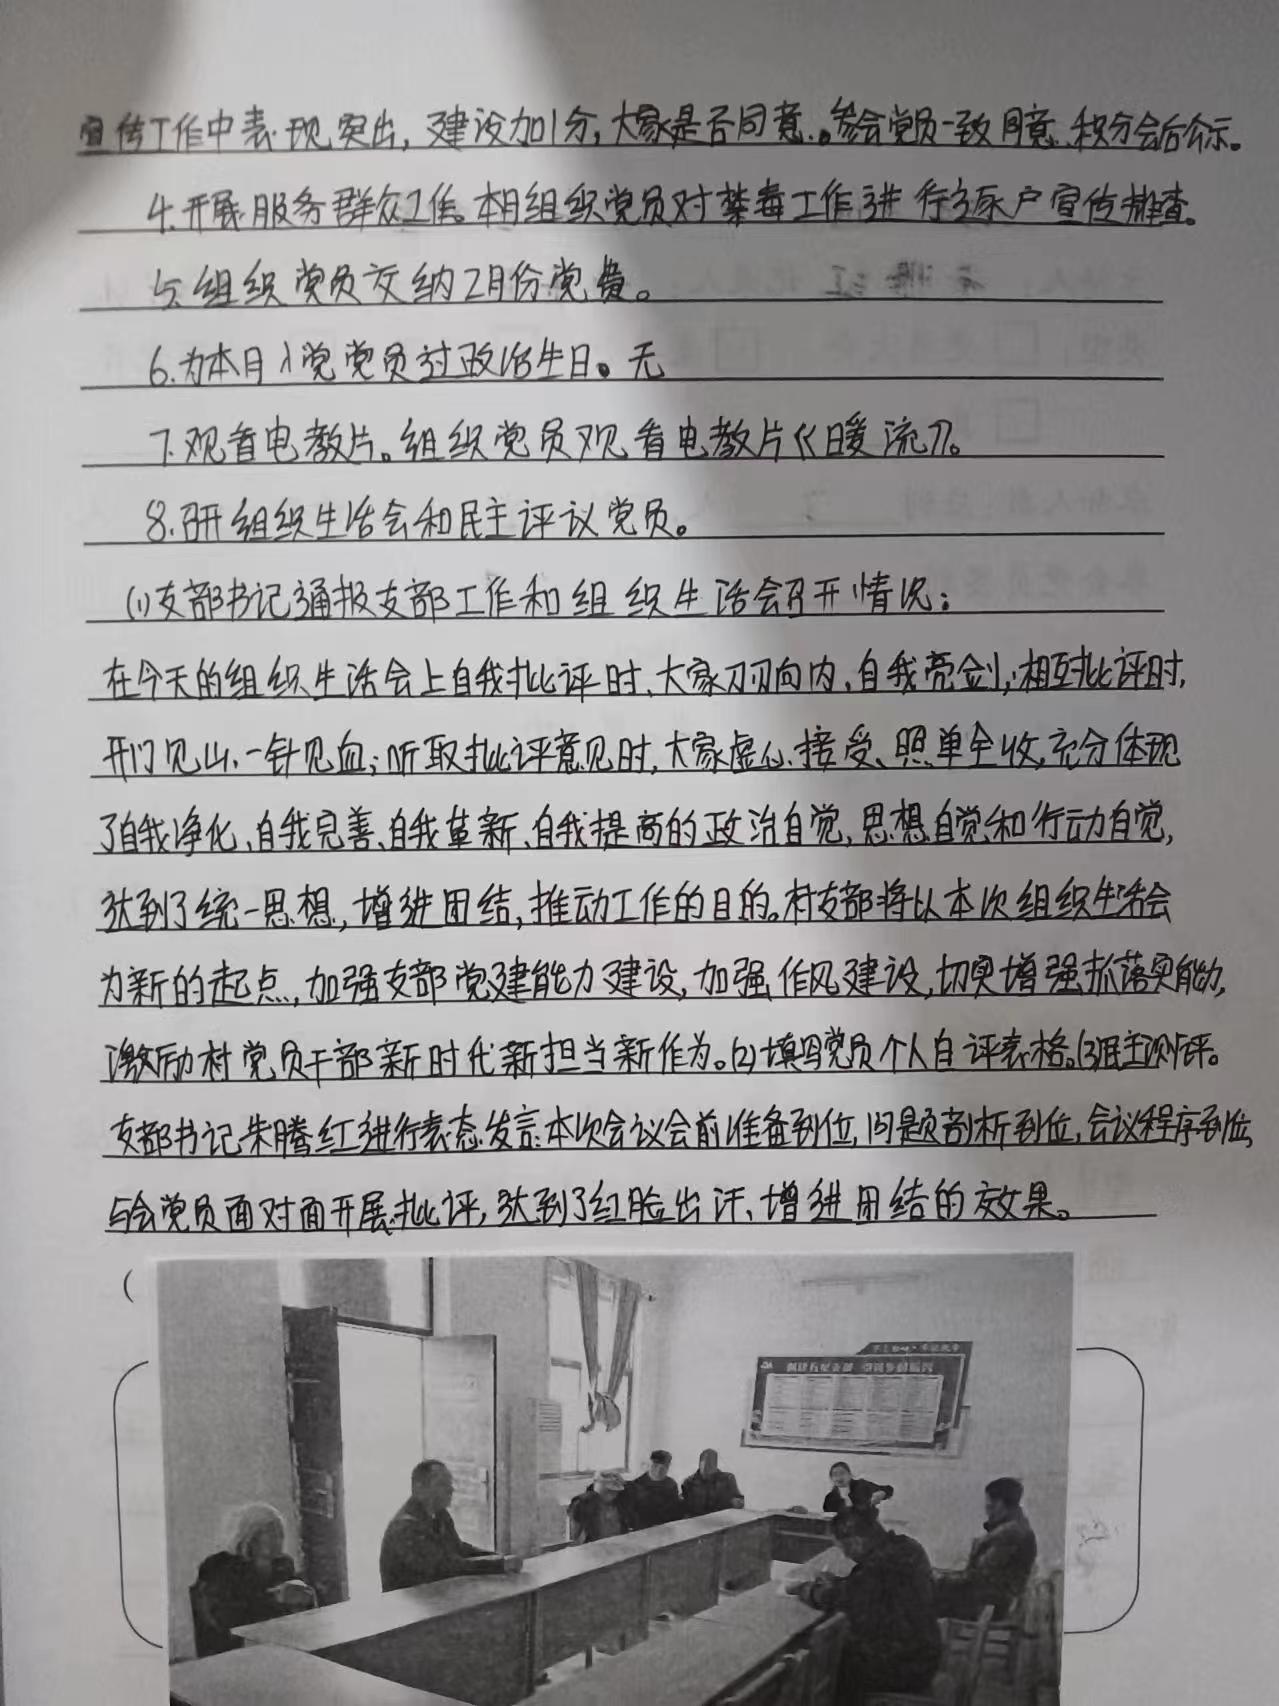 宣传工作中表现突出，建设加1分，大家是否同意。参会党员一致同意，积分会后公示。
4.开展服务群众工作。本月组织党员对禁毒工作进行逐户宣传排查。
5.组织党员交纳2月份党费。
6.为本月入党党员过政治生日。无
7.观看电教片。组织党员观看电教片《暖流》。
8.召开组织生活会和民主评议党员。
(1)支部书记通报支部工作和组织生活会召开情况：
在今天的组织生活会上自我批评时、大家刀刃向内、自我亮剑；相互批评时，
开门见山、一针见血；听取批评意见时，大家虚心接受、照单全收，充分体现
了自我净化、自我完善、自我革新、自我提高的政治自觉，思想自觉和行动自觉，
达到了统一思想，增进团结，推动工作的目的。村支部将以本次组织生活会
为新的起点，加强支部党建能力建设，加强作风建设，切实增强抓落实能力，
激励村党员干部新时代新担当新作为。(2)填写党员个人自评表格。(3)民主测评。
支部书记朱腾红进行表态发言：本次会议会前准备到位，问题剖析到位，会议程序到位，
与会党员面对面开展批评，达到了红脸出汗、增进团结的效果。
(